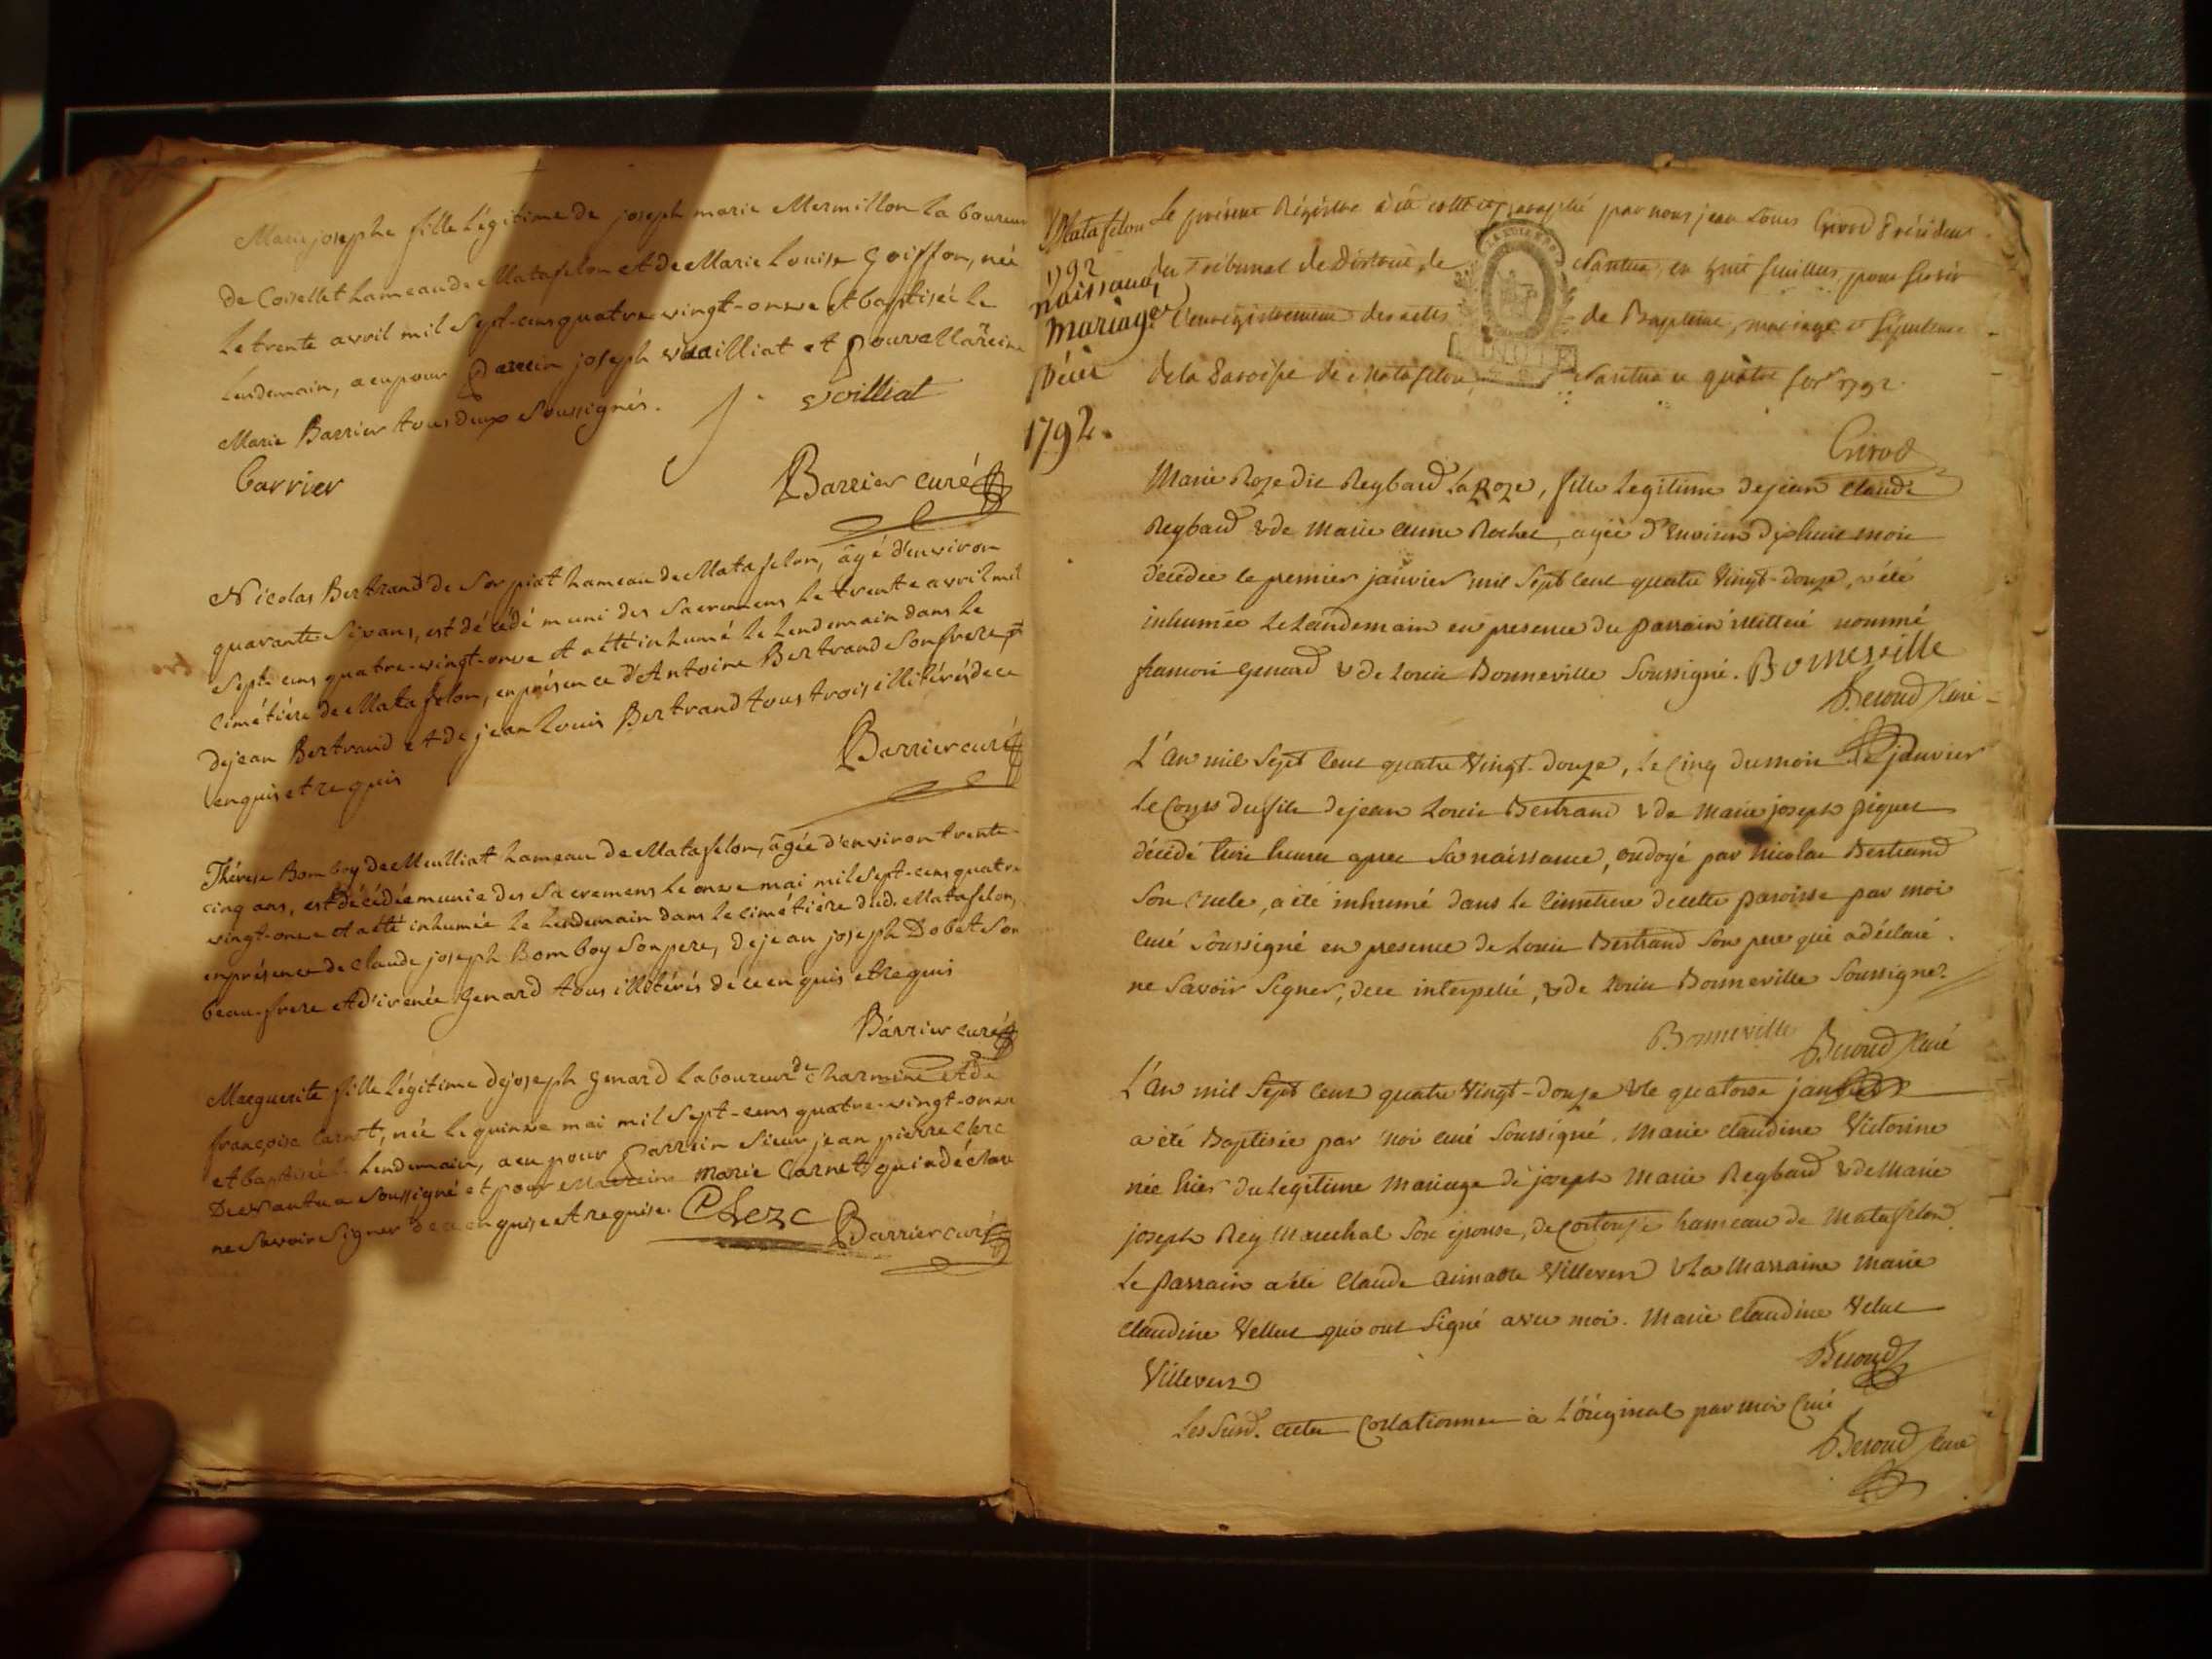 Marie josephe fille légitime de joseph marie Mermillon laboureur
de Coisellet hameau de Matafelon et de Marie Louise Goiffon, née
le trente avril mil sept-cens quatre-vingt-onze et baptisée le
lendemain, a eu pour parrein joseph vuailliat et pour Marreine
Marie Barrier tous deux soussignés.
j. voilliat
barrier
Barrier curé
Nicolas Bertrand de Sorpiat hameau de Matafelon, âgé d'environ
quarante-six ans, est décédé muni des Sacremens le trente avril mil
sept-cens quatre-vingt-onze et a été inhumé le lendemain dans le
cimétière de Matafelon, en présence d'Antoine Bertrand son frere,
de jean Bertrand et de jean Louis Bertrand tous trois illitérés de ce
enquis et requis
Barrier curé
Thérese Bomboy de Meulliat hameau de Matafelon, âgée d'environ trente-
cinq ans, est décédée munie des Sacremens le onze mai mil sept-cens quatre-
vingt-onze et a été inhumée le lendemain dans le cimétière dud. Matafelon,
en présence de claude joseph Bomboy son pere, de jean joseph Dobet son
beau-frere et d'irenée Genard tous illitérés de ce enquis et requis
Barrier curé
Marguerite fille légitime de joseph Genard laboureur de Charmine et de
françoise Carnet, née le quinze mai mil sept-cens quatre-vingt-onze
et baptisée le lendemain, a eu pour parrein sieur jean pierre clerc
de Nantua soussigné et pour Marreine Marie Carnet qui a déclaré
ne savoir signer de ce enquise et requise.
Clerc
Barrier curé
Matafelon
1792
naissances
mariages
décès
1792.
Le présent Régistre a été cotté et paraphé par nous jean Louis Girod Président
du Tribunal de District de Nantua, en huit feuillets, pour servir
l'enregistrement des actes de Baptême, mariage et sépulture
de la Paroisse de Matafelon Nantua ce quatre fer 1792.
LA LOI ET LE ROI
Girod
Marie Roze dit Reybard la Roze, fille legitime de jean claude
Reybard & de Marie Anne Rochet, agée d'environ dixhuit mois
décédée le premier janvier mil sept cent quatre vingt-douze, a été
inhumée le landemain en presence du parrain illitteré nommé
francois genard & de Louis Bonneville soussigné. Bonneville
Beroud Curé
L'an mil sept cent quatre vingt-douze, le cinq du mois de janvier
le corps du fils de jean Louis Bertrand & de Marie joseph piquet
décédé trois heures apres sa naissance, ondoyé par nicolas Bertrand
son oncle, a été inhumé dans le cimetiere de cette paroisse par moi
curé soussigné en presence de Louis Bertrand son pere qui a déclaré
ne savoir signer, de ce interpellé, & de Louis Bonneville soussigné.
Bonneville Beroud Curé
L'an mil sept cent quatre vingt-douze & le quatorze janvier
a été Baptisée par moi curé soussigné, Marie claudine Victorine
née hier du legitime mariage de joseph Marie Reybard & de Marie
joseph Rey Marechal son épouse, de corton hameau de Matafelon.
Le parrain a été claude aimable Villevert & la Marraine Marie
Claudine Vellut qui ont signé avec moi. Marie claudine Velut
Villevert
Beroud
Les susd. actes collationnés à l'original par moi Curé
Beroud Curé